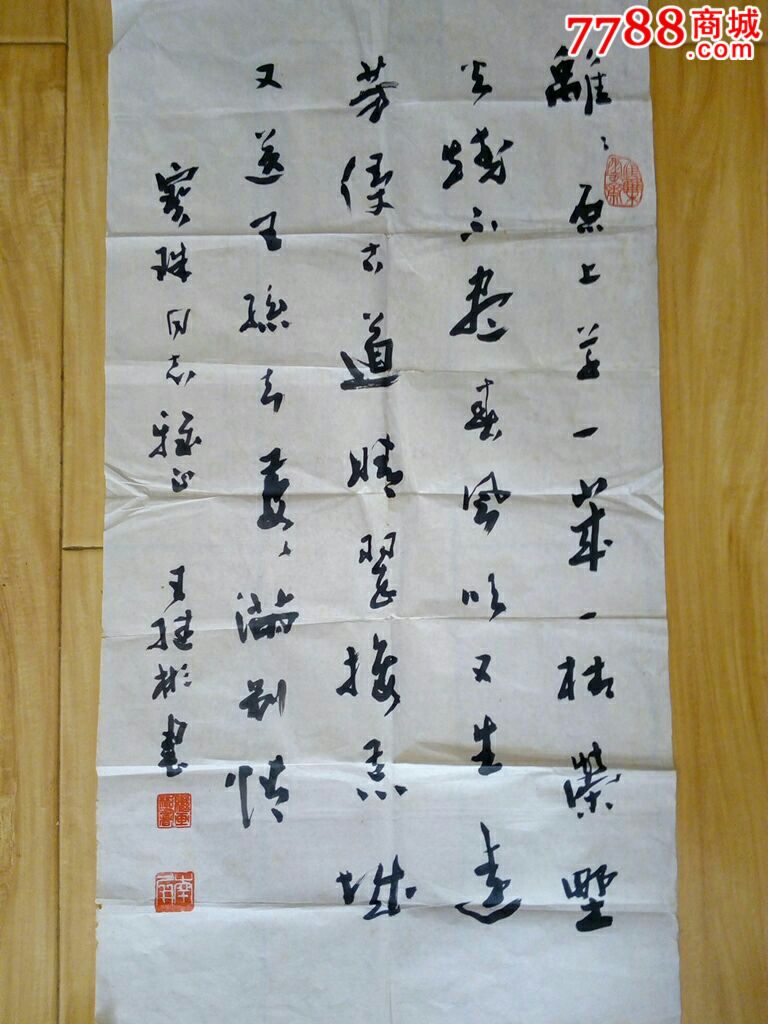 7788商城
.com
離〻原上草一歲一枯榮野
火燒不盡春風吹又生遠
芳侵古道晴翠接荒城
又送王孫去萋〻滿別情
寶珠同志雅正
王 彬書